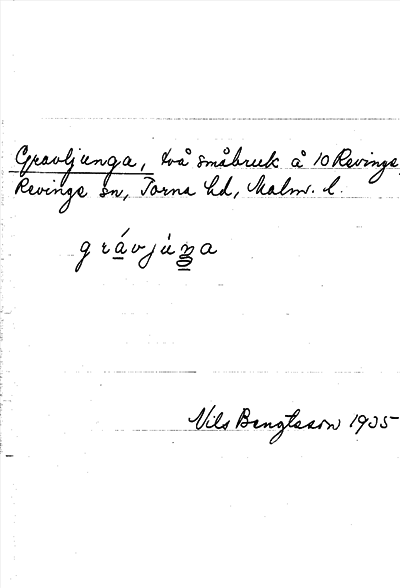 Gravljunga, två småbruk å 10 Revinge,
Revinge sn, Torna hd, Malm. l.
grávjùŋa
Nils Bengtsson 1935